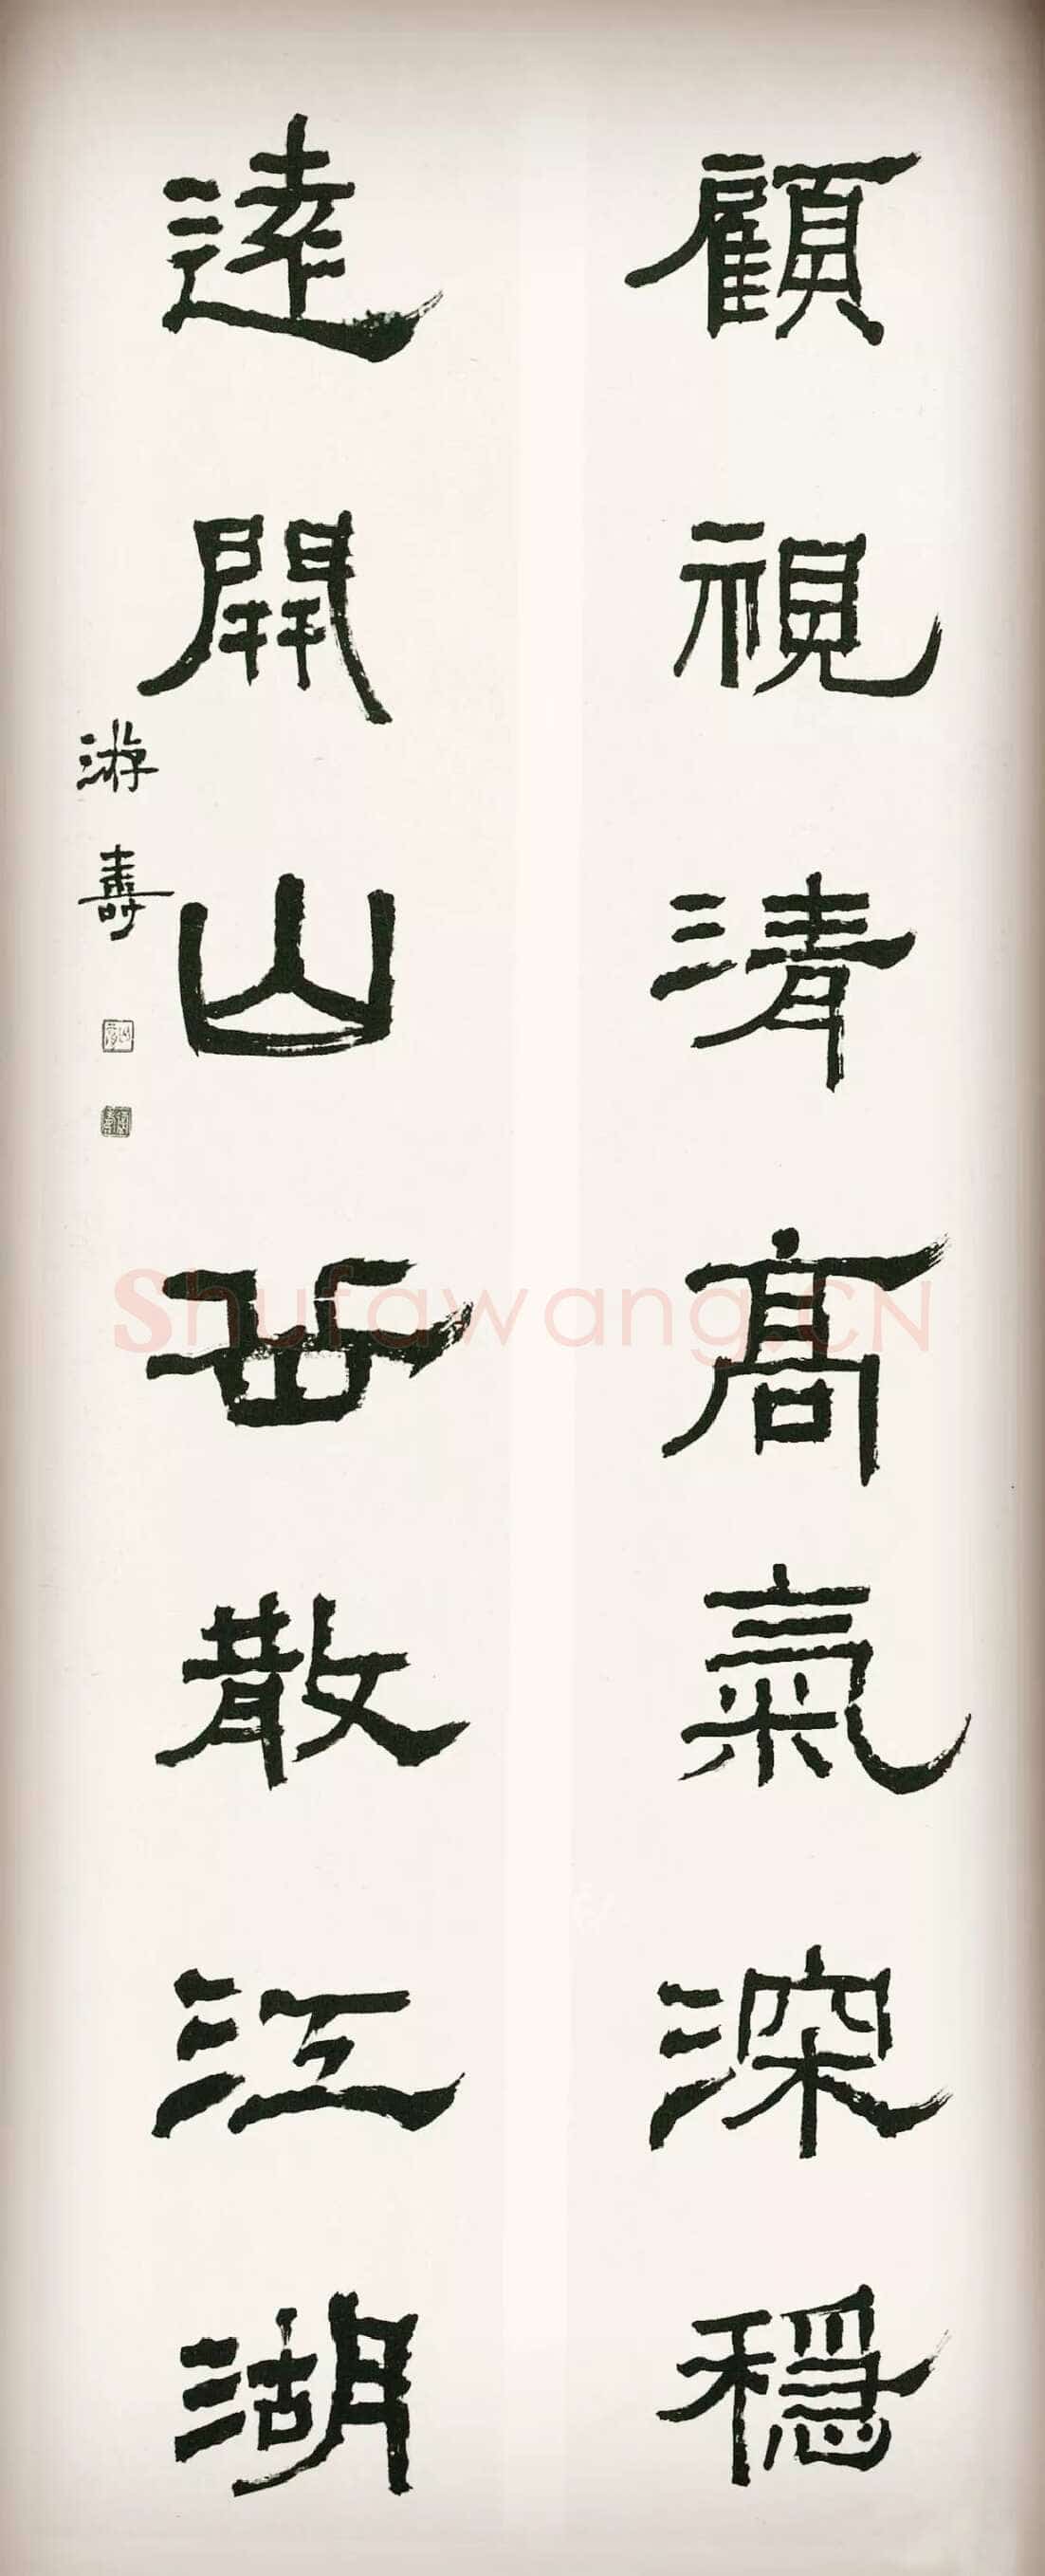 顧視清高氣深穩
逺開山岳散江湖
游壽
Shufawang.CN